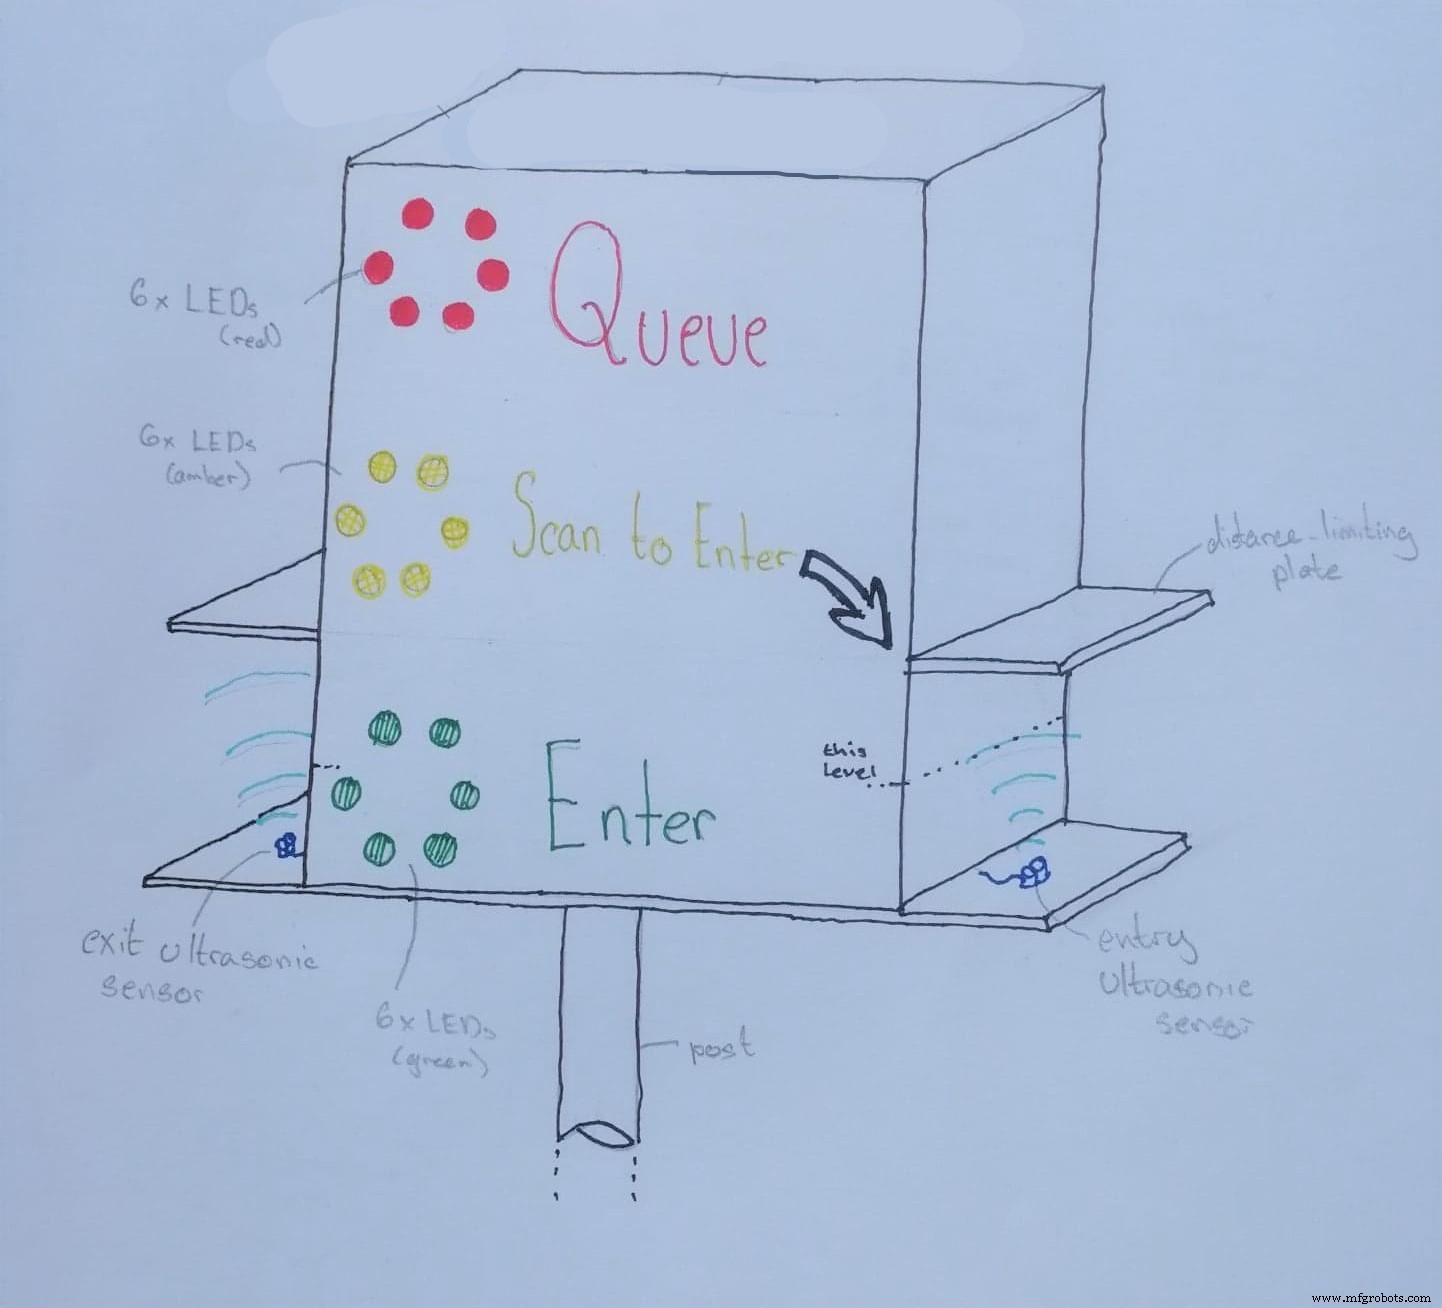 6x LEDs
(red)
Queue
6x LEDs
(amber)
Scan to Enter
distance-limiting
plate
this
level
Enter
exit ultrasonic
sensor
6x LEDs
(green)
post
entry
ultrasonic
sensor
www.mfgrobots.com